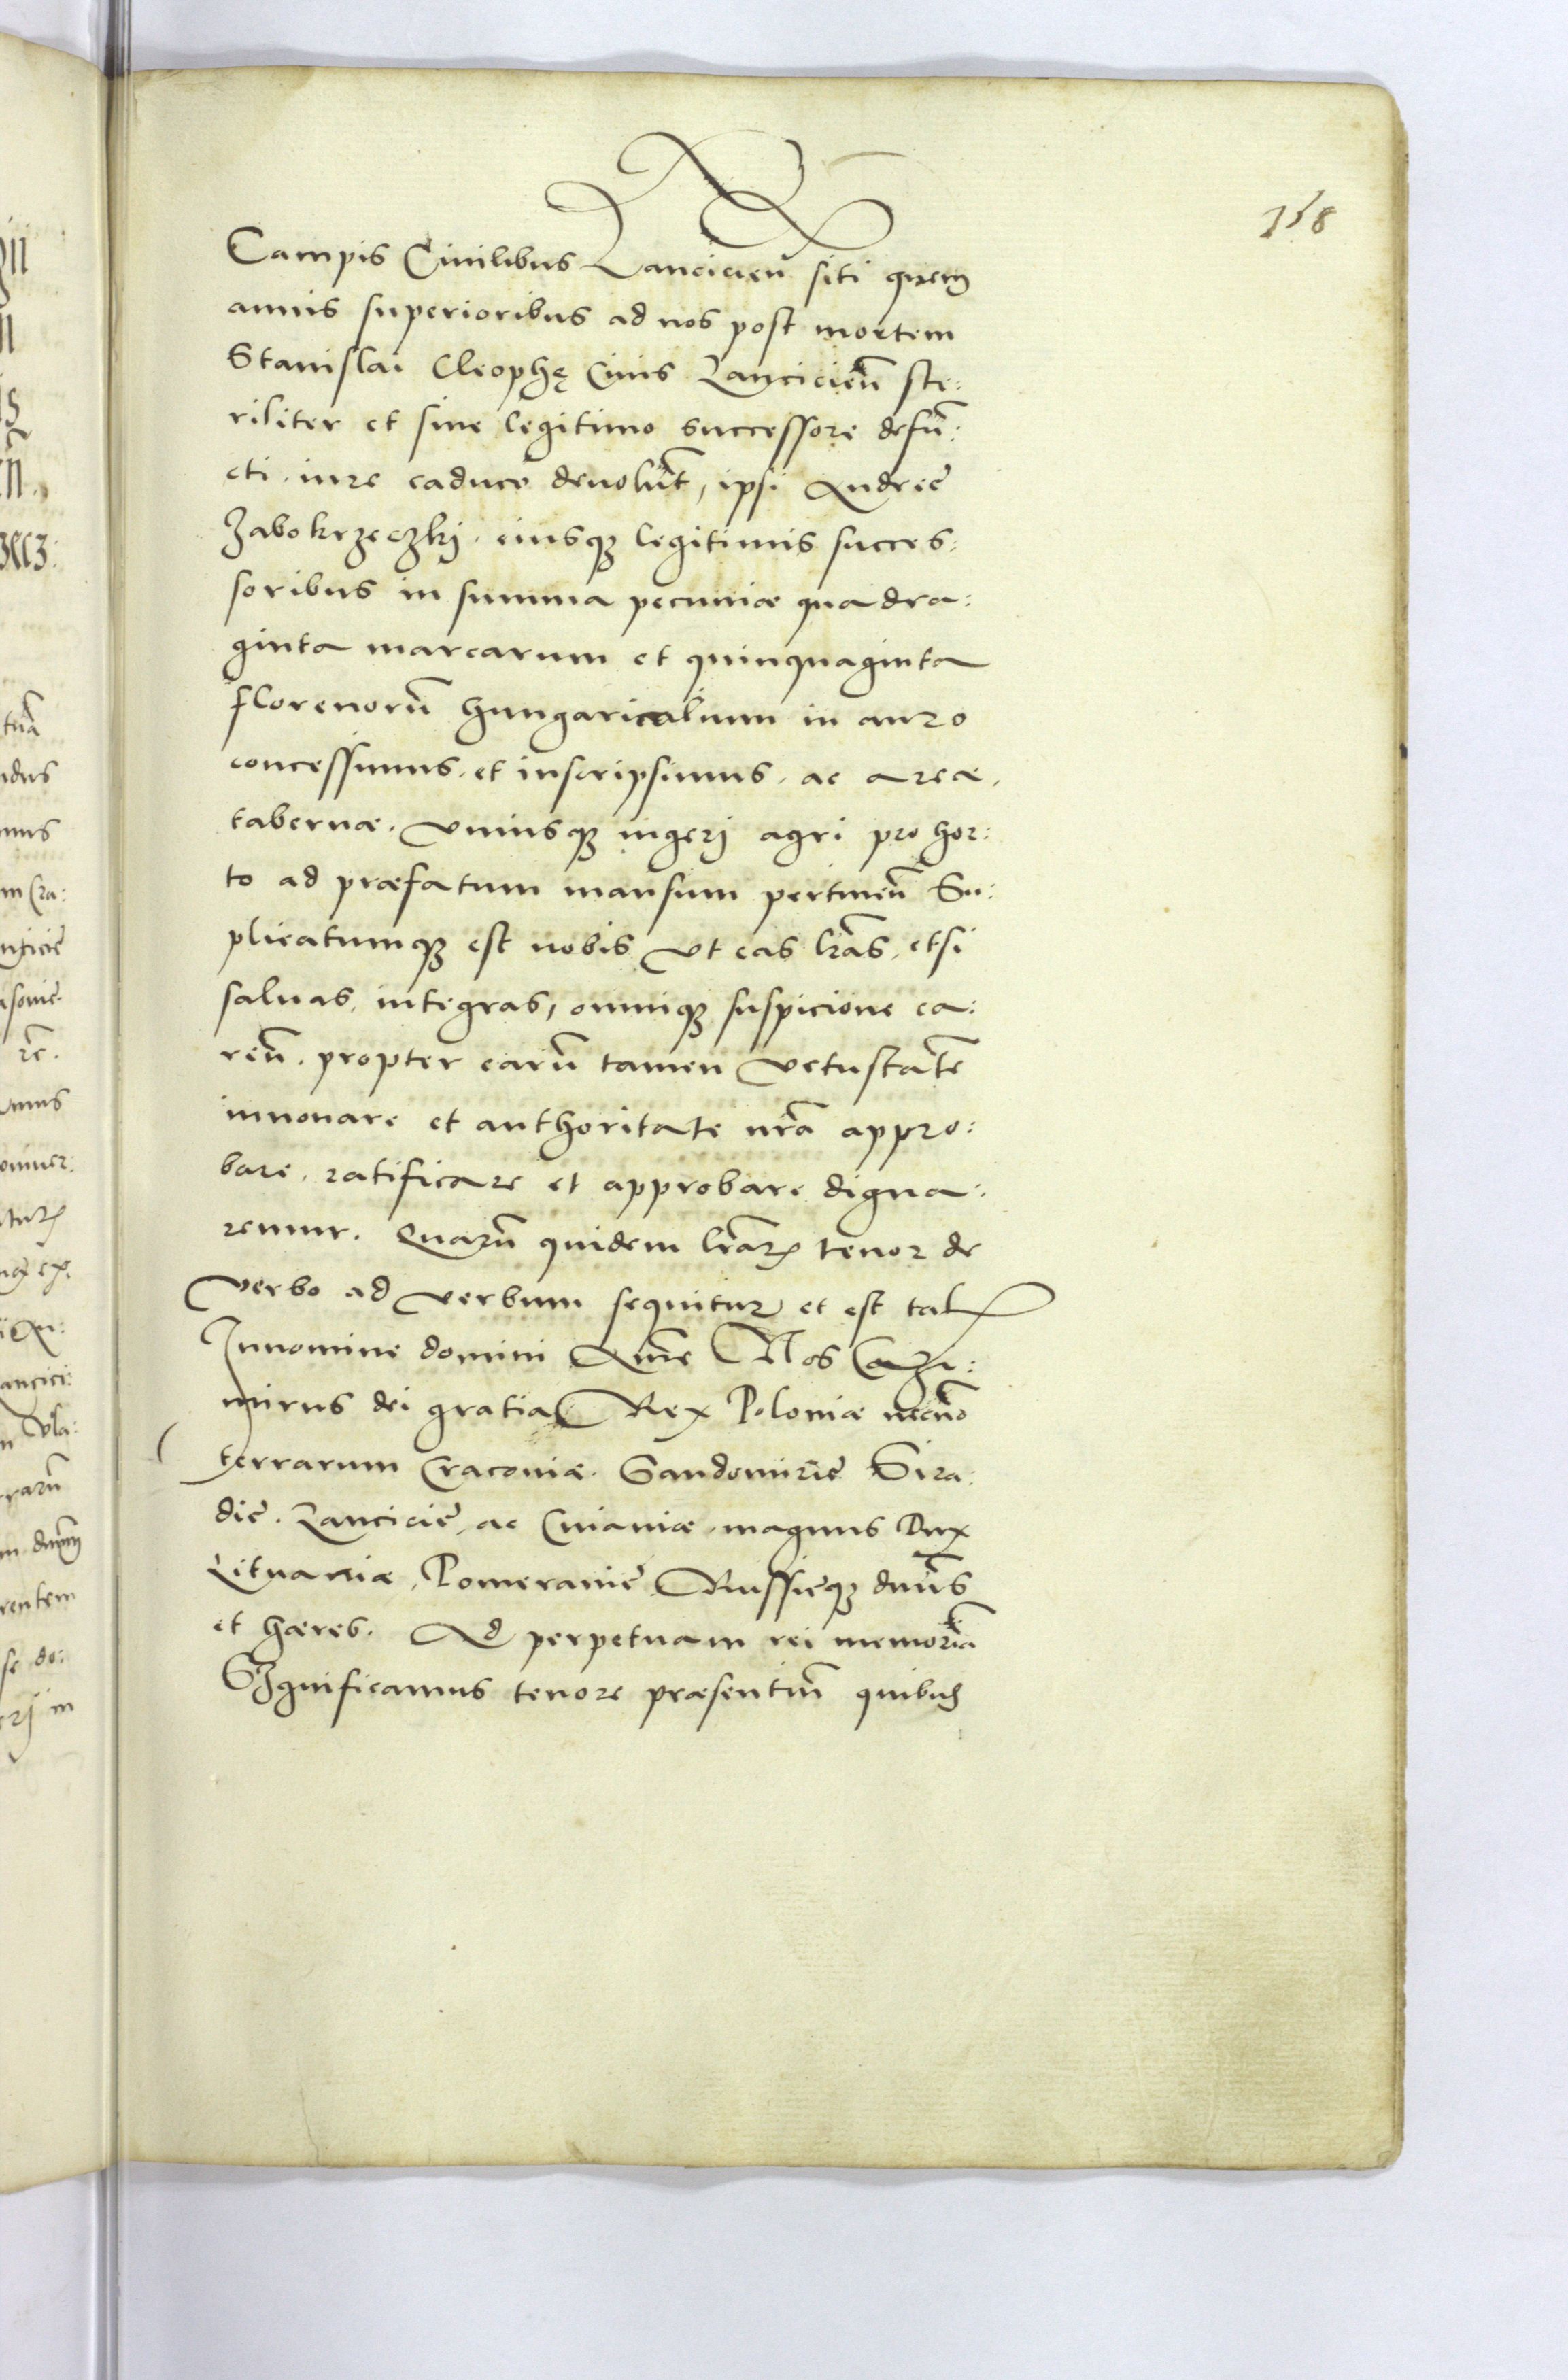 158
Campis Ciuilibus Lancicien siti quem
annis superioribus ad nos post mortem
Stanislai Cleophę Ciuis Lancicien̄ ste:
riliter et sine legitimo successore defūn:
cti. iure caduco deuolut̄, ipsi Andreę
Zabokrzeczki. eiusqꝫ legitimis succes:
soribus in summa pecuniæ quadra:
ginta marcarum et quinquaginta
florenorū hungaricalium in auro
concessimus. et inscripsimus. ac areæ.
tabernæ. vniusqꝫ iugeri agri pro hor:
to ad præfatum mansum pertinen̄ Su:
plicatumqꝫ est nobis vt eas lr̄as. etsi
saluas, integras, omniqꝫ suspicione ca:
ren̄. propter earū tamen vetustatē
innouare et authoritate nr̄a appro:
bare. ratificare et approbare digna:
remur. Quarū quidem lr̄arꝫ tenor de
verbo ad verbum sequitur et est talꝭ
Innomine domini Amē Nos Cazi:
mirus dei gratia Rex Poloniæ necnō
terrarum Cracouiæ. Sandomirię Sira:
dię. Lancicię, ac Cuiauiæ. magnus Dux
Lituaniæ, Pomeranię Russięqꝫ dn̄us
et hæres. Ad perpetuam rei memoriā
Significamus tenore præsentiū quibus
gij
tuā
idus
mus
m Cra:
ncicię
rē.
omnes
turꝫ
ancici:
n Vla:
rrarū
rentem
se do:
erj in